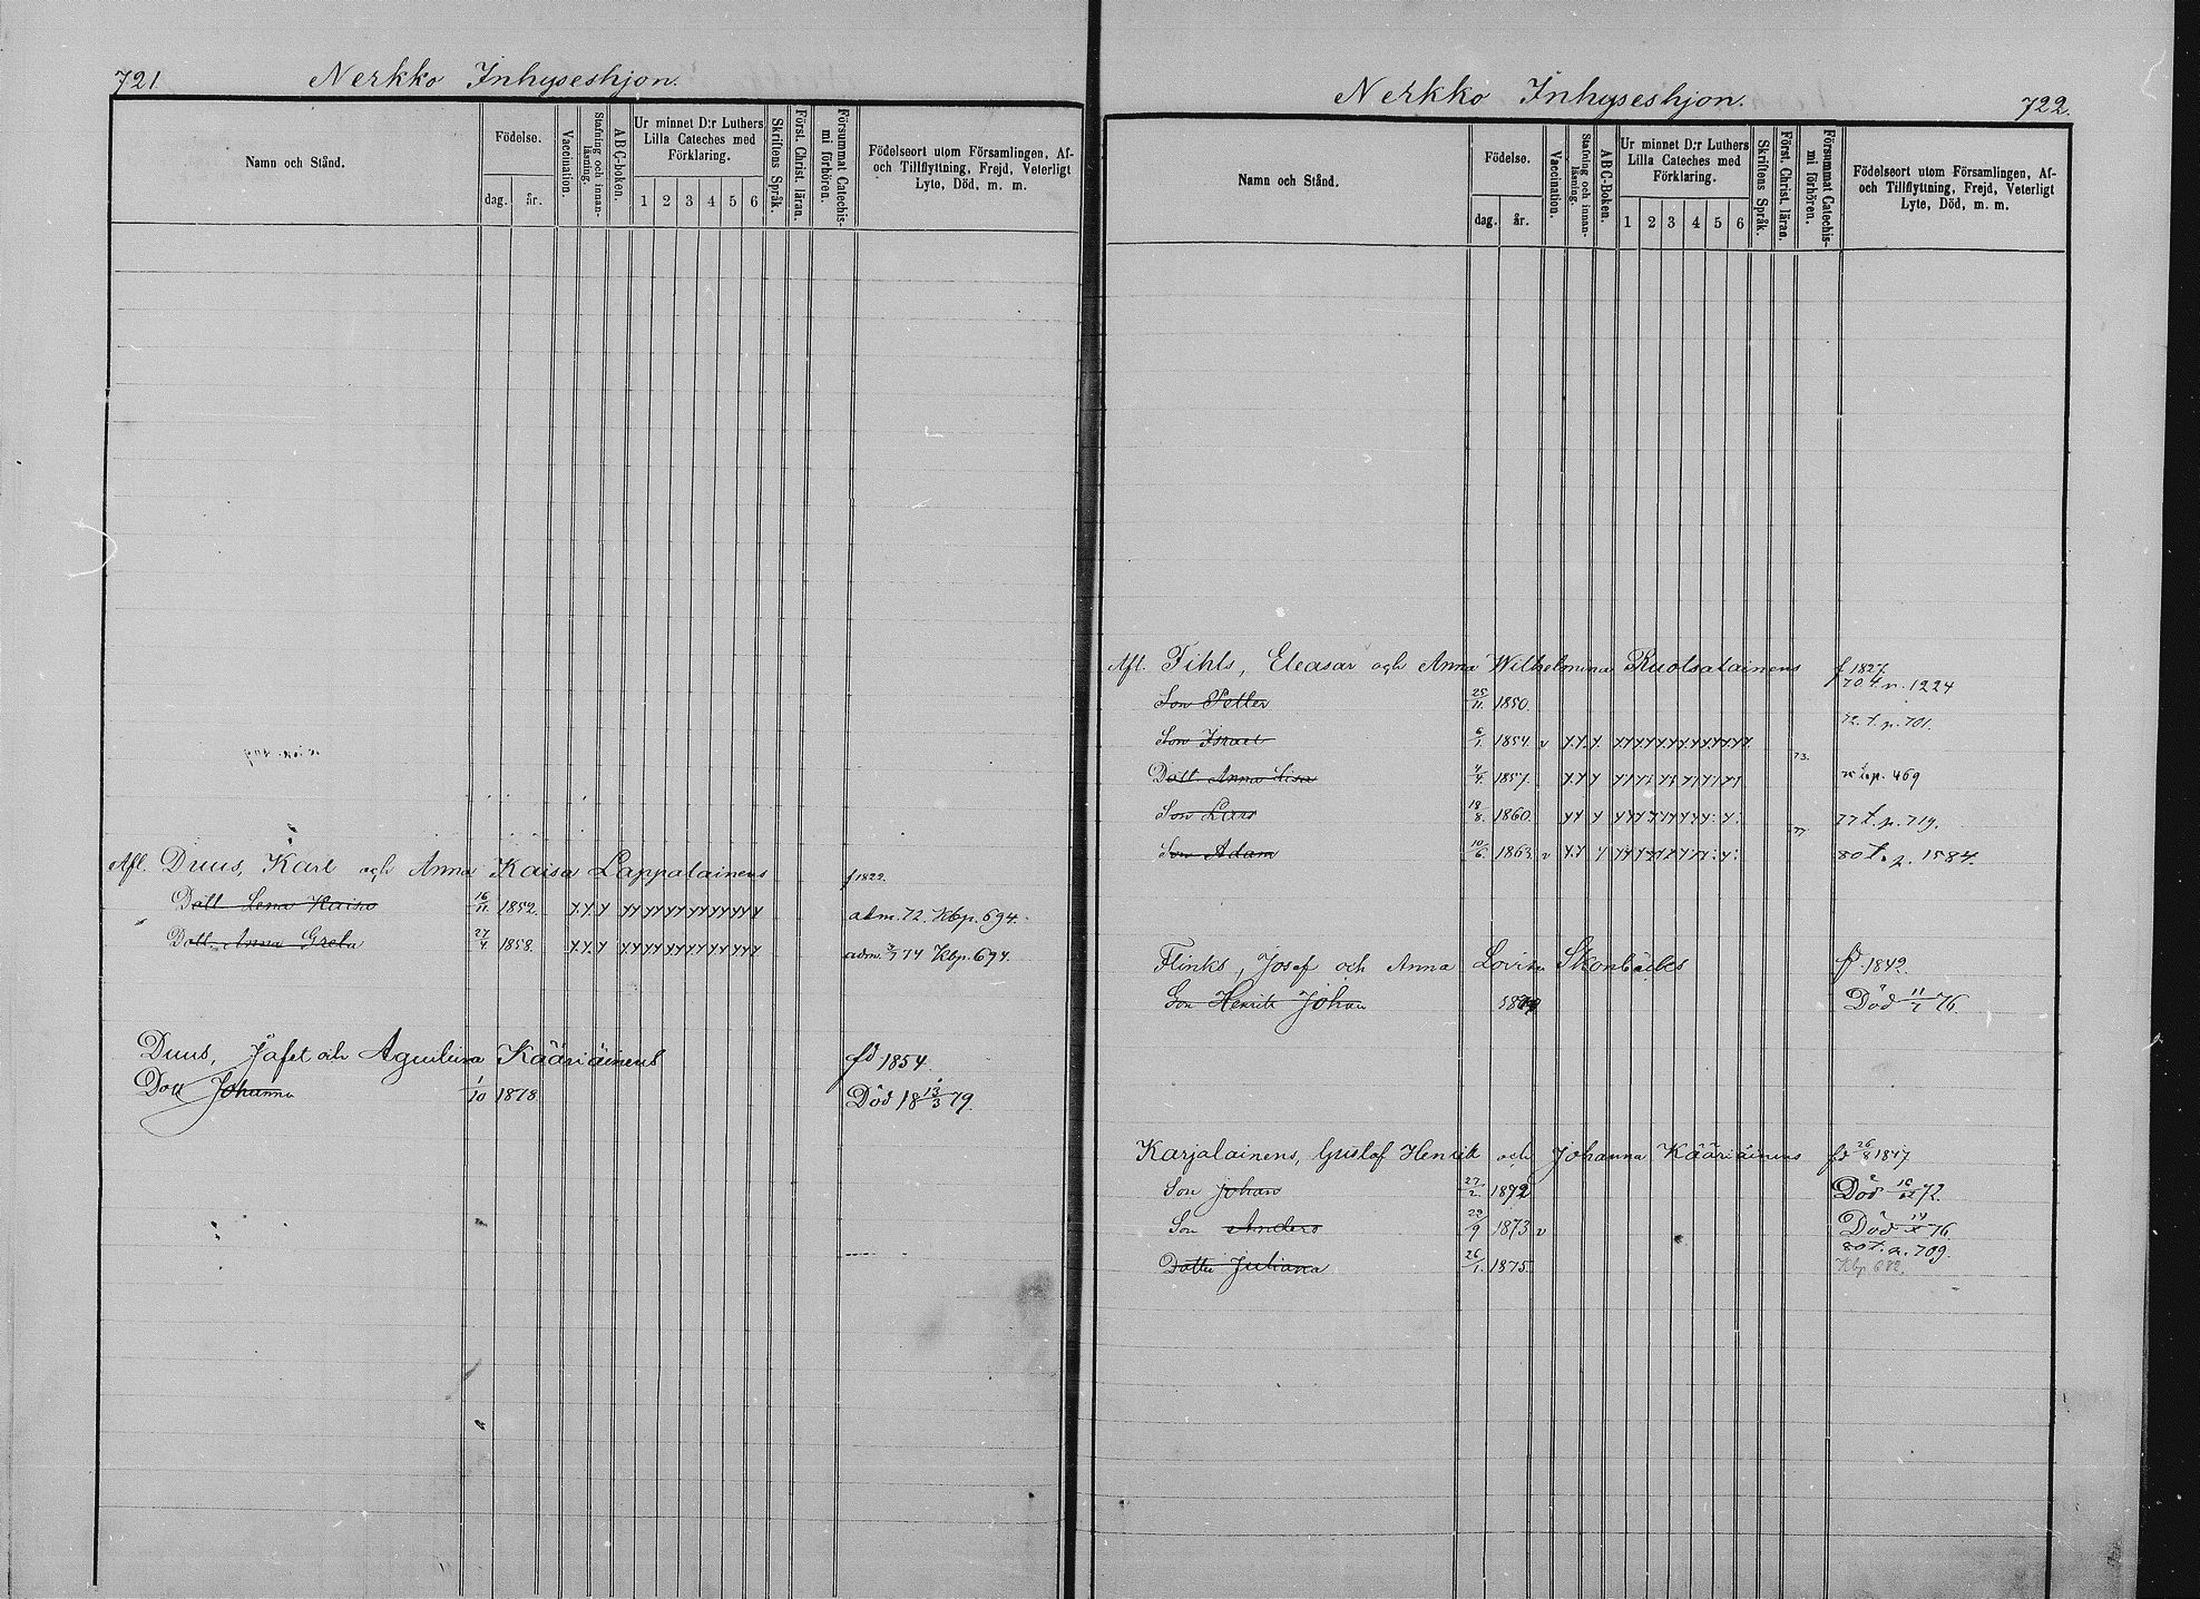 721.
Nerkko Inhyseshjon.
Namn och Stånd.
Födelse.
dag.
år.
Vaccination.
Stafning och innan-
läsning.
ABC-boken.
Ur minnet D:r Luthers
Lilla Cateches med
Förklaring.
1 2 3 4 5 6
Skriftens Språk.
Först. Christ. läran.
Försummat Catechis-
mi förhören.
Födelseort utom Församlingen, Af-
och Tillflyttning, Frejd, Veterligt
Lyte, Död, m. m.
Afl. Duus, Karl och Anna Kaisa Lappalainens f 1822.
Dott. Lena Kaisa 16/11 1852. adm. 72. Kbp. 694.
Dott. Anna Greta 27/4. 1858. adm. 74 Kbp. 694.
Duus, Jafet och Kääriäinens fd 1854.
Dott Johanna 1/10 1878. Död 18 13/3 79.
Nerkko Inhyseshjon.
722.
Namn och Stånd.
Födelse.
dag.
år.
Vaccination.
Stafning och innan-
läsning.
ABC-Boken.
Ur minnet D:r Luthers
Lilla Cateches med
Förklaring.
1 2 3 4 5 6
Skriftens Språk.
Först. Christ. läran.
Försummat Catechis-
mi förhören.
Födelseort utom Församlingen, Af-
och Tillflyttning, Frejd, Veterligt
Lyte, Död, m. m.
Afl. Tihls, Eleasar och Anna Wilhelmina Ruotsalainens f 1827.
Son Petter 25/11. 1850. 70 t. p. 1224
Son Israel 6/1. 1854. v 72. t. p. 701.
Dott. Anna Lisa 4/4. 1857. 73. p. 469
Son Lars 18/8. 1860. 77 t. p. 719.
Son Adam 10/6. 1863 v 77 80 t. p. 1584.
Flinks, Josef och Anna Lovisa fd 1842.
Son Henrik Johan Död 11/1 76.
Karjalainens, Gustaf Henrik och Johanna Kääriäinens fd 26/8 1847
Son Johan 27/2. 1872 Död 72.
Son Anders 29/9 1873 v Död 76.
Dotter Juliana 26/1. 1875. 80 t. p. 709.
Kbp 682.